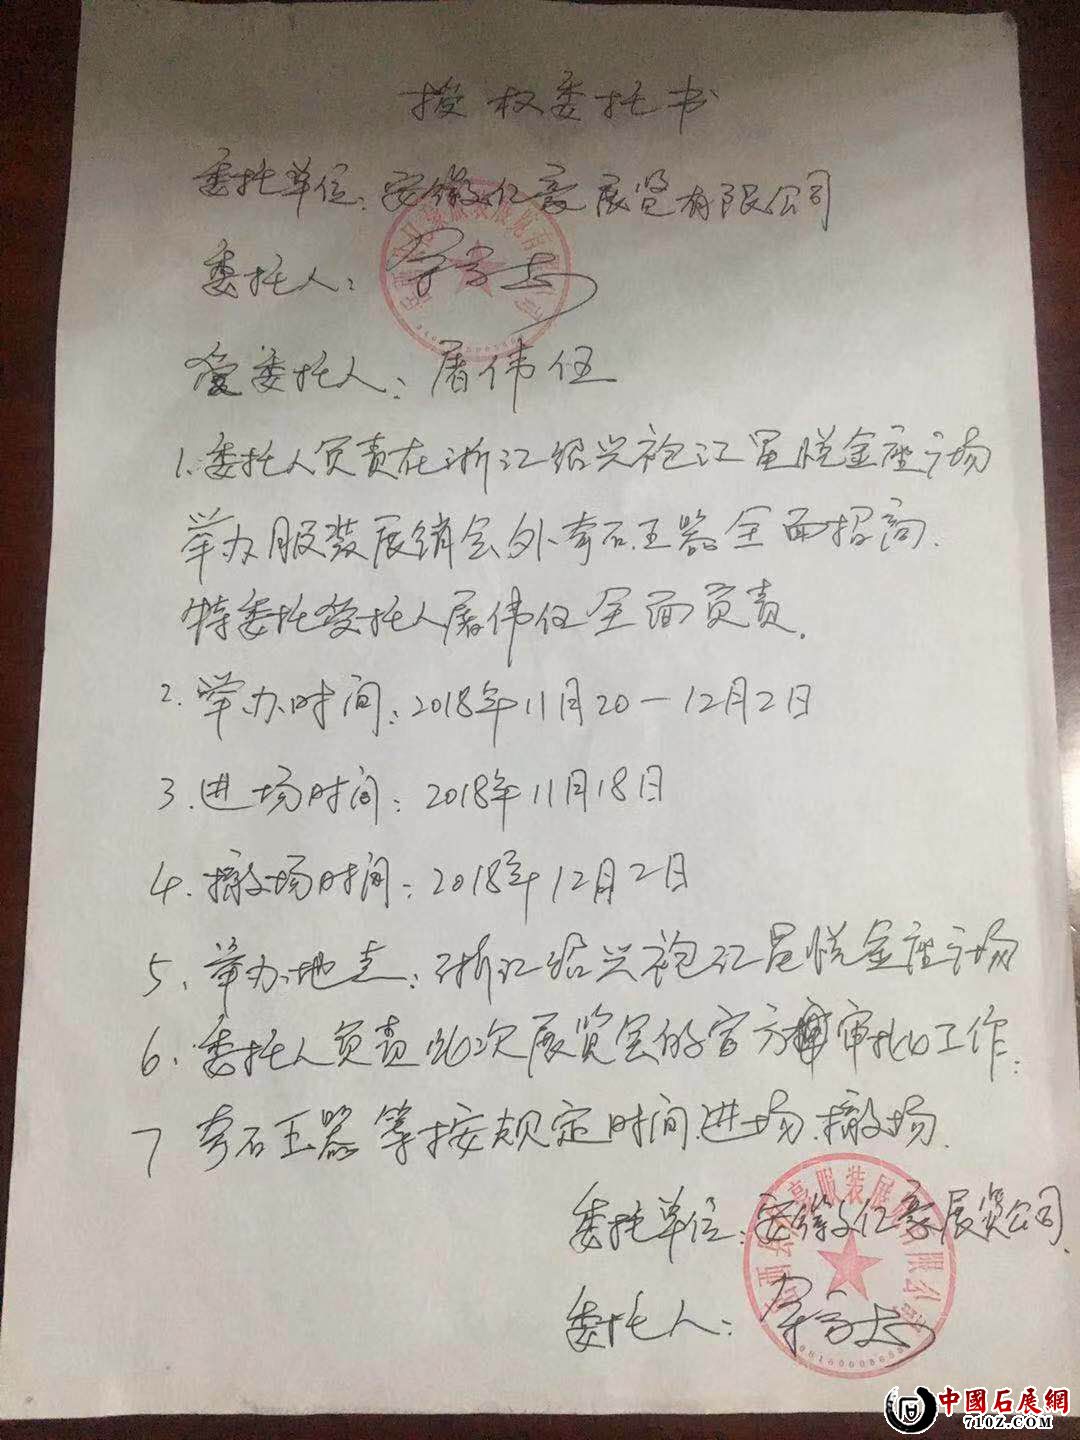 授权委托书
委托单位:安徽仁豪展览有限公司
委托人:
受委托人:屠伟任
1.委托人负责在浙江绍兴袍江昆悦金座广场
举办服装展销会外奇石玉器全面招商.
特委托受托人屠伟任全面负责.
2.举办时间:2018年11月20-12月2日
3.进场时间:2018年11月18日
4.撤场时间:2018年12月2日
5.举办地点:浙江绍兴袍江昆悦金座广场
6.委托人负责此次展览会的官方审批工作.
7 奇石玉器等按规定时间进场.撤场.
委托单位:安徽仁豪展览公司
委托人:
服装展
限公司
中國石展網
7102.COM